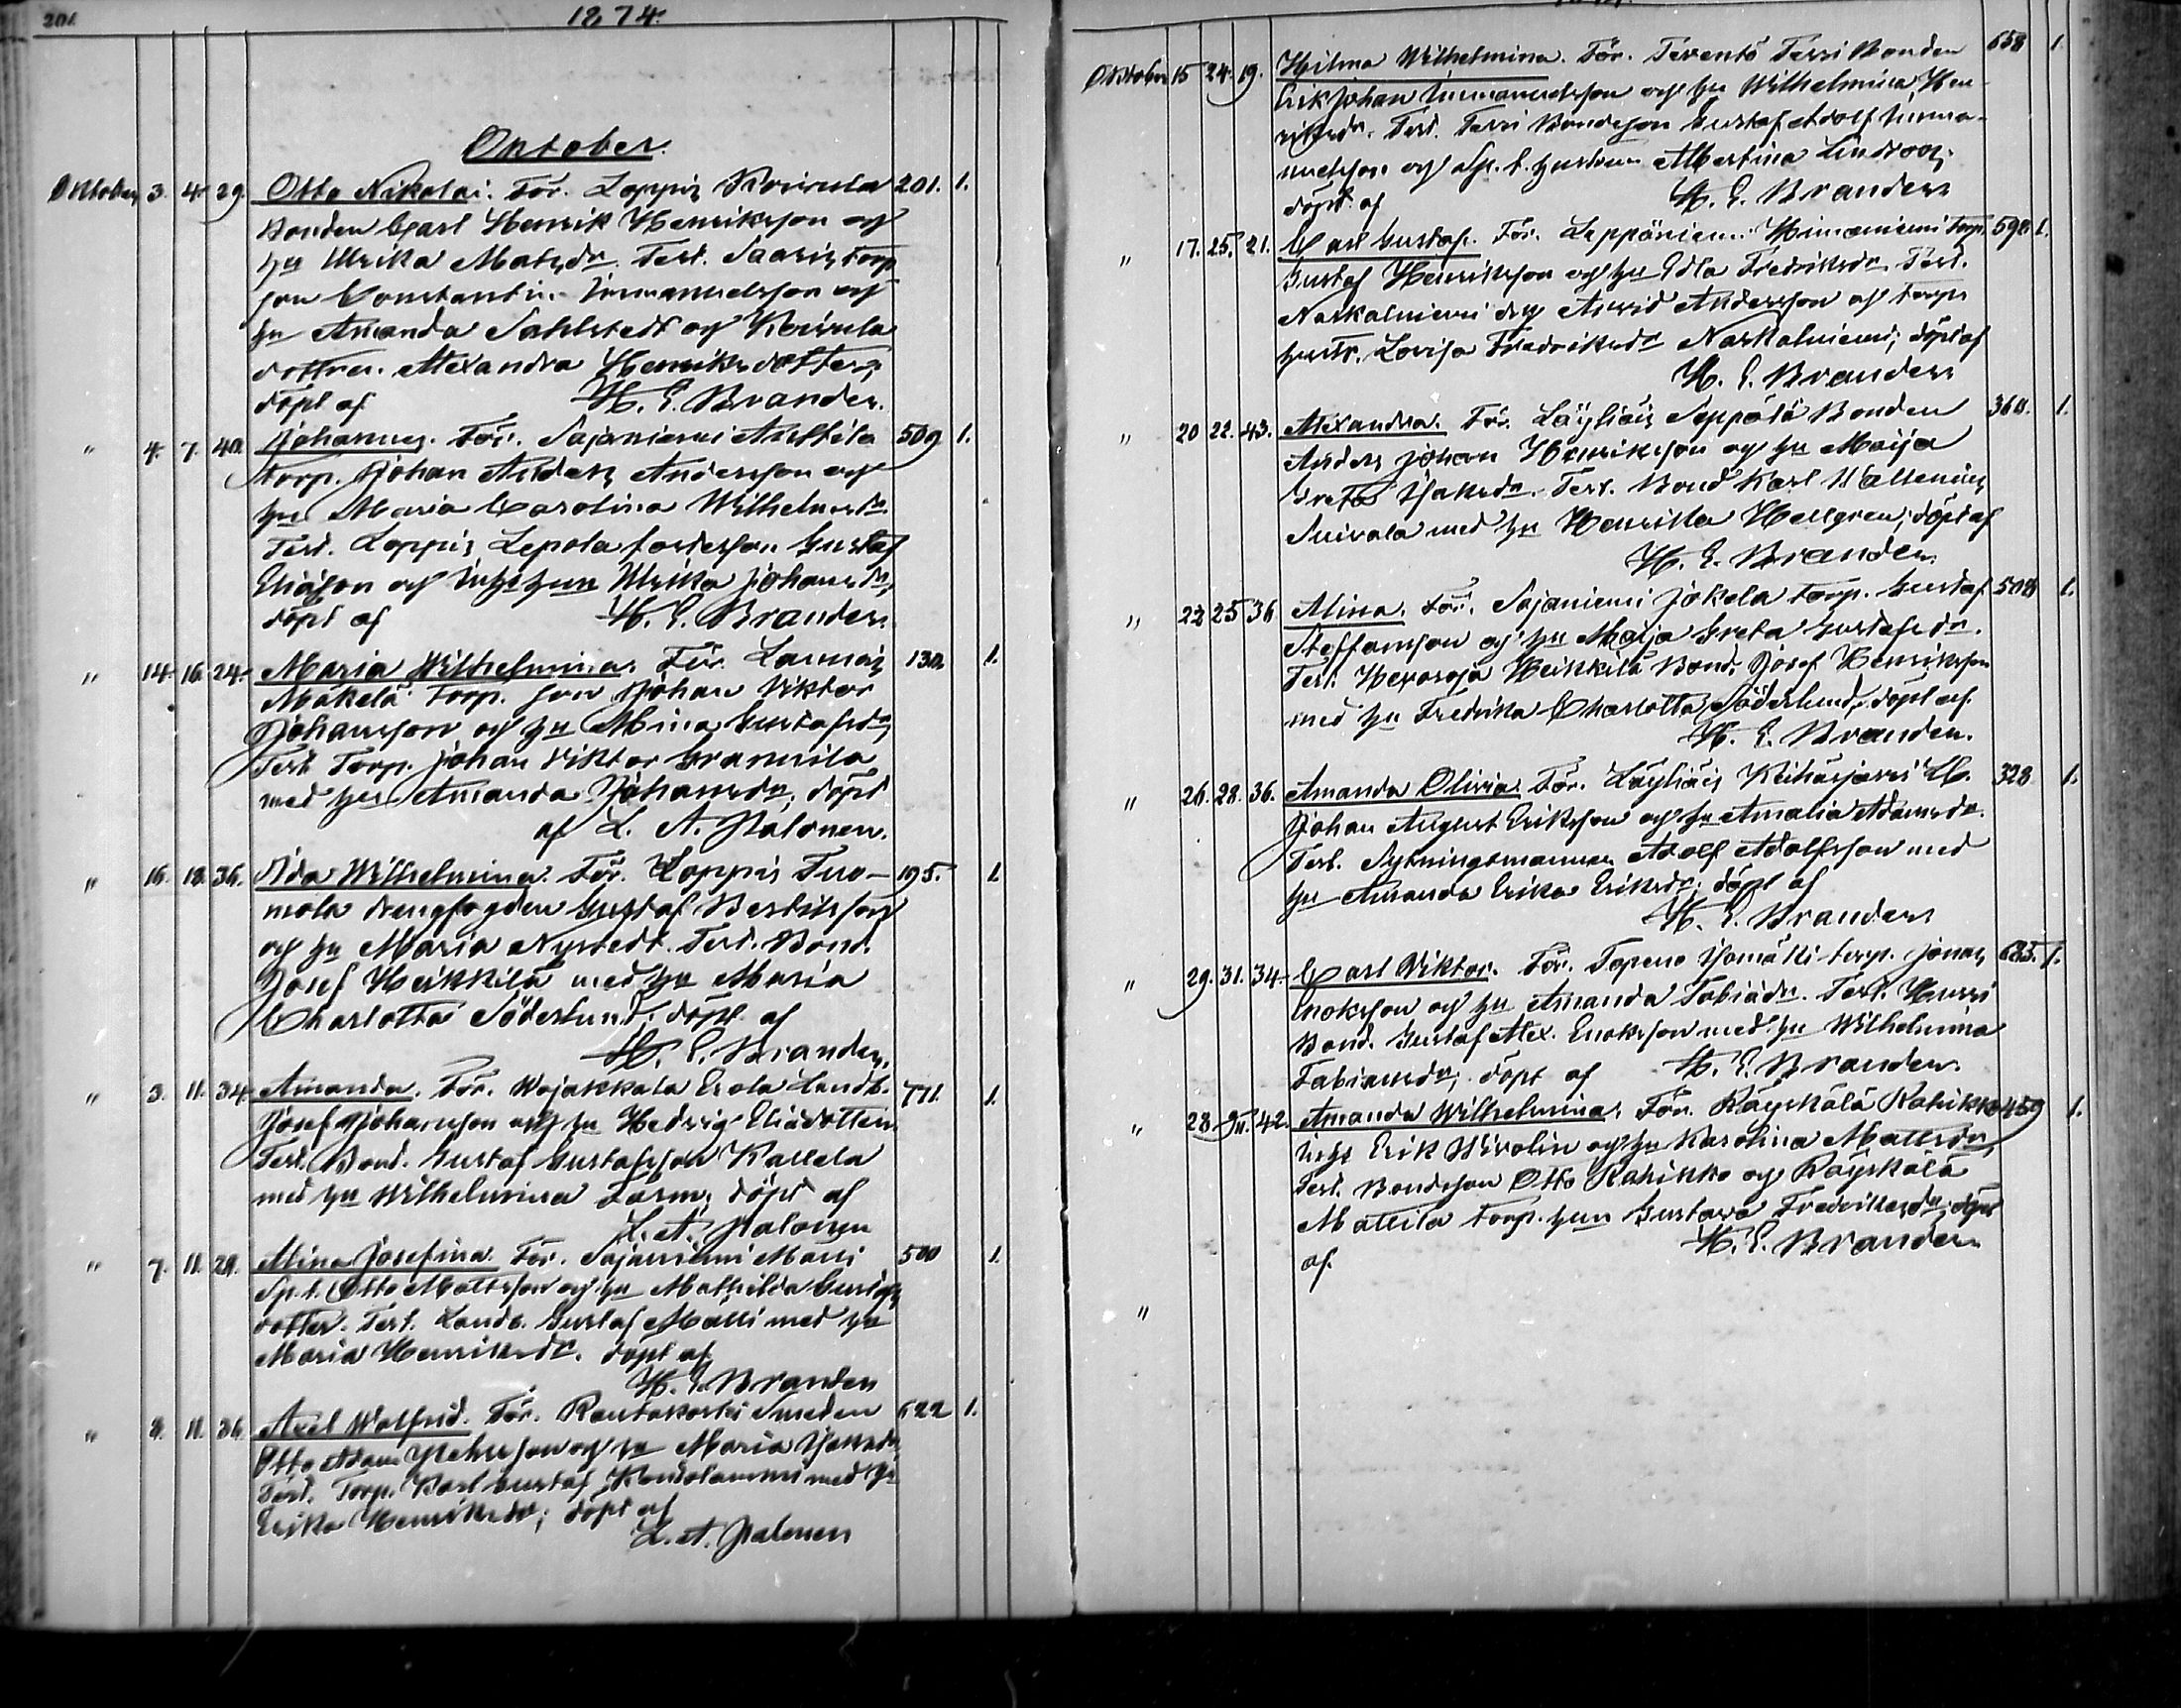 201.
1874.
Oktober.
Oktober 3. 4. 29. Otto Nikolai. För. Loppis Koivula 201. 1.
Bonden Carl Henrik Henriksson och
hu Ulrika Matsdr. Test. Saaris torp.
son Constantin Immanuelsson och
hu Amanda Sahlstedt och Koivula
dottren Alexandra Henriksdotter;
döpt af H. E. Brander.
" 4. 7. 40. Johannes. För. Sajaniemi Anttila 509 1.
torp. Johan Anders Andersson och
hu Maria Carolina Wilhelmsdr.
Test. Loppis Lepola Gustaf
Eliasson och Inhs hun Ulrika Johansdr,
döpt af H. E. Brander.
" 14. 16. 24. Maria Wilhelmina. För. Launois 130. 1.
Mäkelä Torp. son Johan Viktor
Johansson och hu Mina Gustafsdr,
Test. Torp. Johan Viktor Grannila
med hu Amanda Johansdr, döpt
af L. A. Palonen.
" 16. 18. 36. Ida Wilhelmina. För. Loppis Tuo- 195. 1.
mola drengfogden Gustaf Bertilsson
och hu Maria Nystedt. Test. Bond.
Josef Heikkilä med hu Maria
Charlotta Söderlund; döpt af
H. E. Brander.
" 3. 11. 34. Amanda. För. Wojakkala Erola Landb. 771. 1.
Josef Johansson och hu Hedvig Eliädotter.
Test. Bond. Gustaf Gustafsson Kallela
med hu Wilhelmina Form; döpt af
L. A. Palonen
" 7. 11. 29. Alina Josefina. För. Sajaniemi Malli 500 1.
Sp. t. Otto Mattsson och hu Mathilda Gustafs
dotter. Test. Landb. Gustaf Mälli med hu
Maria Henriksdr. döpt af
H. E. Brander
" 8. 11. 36. Axel Walfrid. För. Rautakoski Smeden 622 1.
Otto Adam och hu Maria
Test. Torp. Karl Gustaf med hu
Erika Henriksdr; döpt af
L. A. Palonen
Oktober 15 24. 19. Hilma Wilhelmina. För. Teventö Terri Bonden 658 1.
Erik Johan Immanuelsson och hu Wilhelmina Hen-
riksdr. Test. Terri Bondeson Gustaf Adolf Imma-
nuelsson och Sp. t. hustrun Albertina Lindroos;
döpt af H. E. Brander
" 17. 25. 21. Carl Gustaf. För. Leppäniemi torp. 598 1.
Gustaf Henriksson och hu Edla Fredriksdr. Test.
drg Arvid Andersson och torps
hustr. Lovisa Fredriksdr döpt af
H. E. Brander
" 20 22. 43. Alexandra. För. Läyliäis Seppälä Bonden 360. 1.
Anders Johan Henriksson och hu Maija
Greta Isaksdr. Test. Bond Karl Wallenius
med hu Henrika Hellgren; döpt af
H. E. Brander
" 22 25 36 Alina. För. Sajaniemi Jokela torp. Gustaf 508 1.
Steffansson och hu Maija Greta Gustafsdr.
Test. Hevosoja Heikkilä Bond. Josef Henriksson
med hu Fredrika Charlotta Söderlund, döpt af
H. E. Brander.
" 26. 28. 36. Amanda Olivia. För. Läyliäis Keihäsjärvi Lb. 328 1.
Johan August Eriksson och hu Amalia Adamsdr.
Test. Sytningsmannen Adolf Adolfsson med
hu Amanda Erika Eriksdr; döpt af
H. E. Brander
" 29. 31. 34. Carl Viktor. För. Topeno Isomälli torp. Jonas 685. 1.
Enoksson och hu Amanda Tobiädr. Test. Hurri
Bond. Gustaf Alex. Enoksson med hu Wilhelmina
Fabiansdr; döpt af H. E. Brander.
" 28 42. Amanda Wilhelmina. För. Räyskälä Rahikko 459 1.
Inhs Erik Wirolin och hu Karolina Mattsdr,
Test. Bondeson Otto Rahikko och Räyskälä
Mattila torp. hun Gustava Fredriksdr, döpt
af H. E. Brander
"